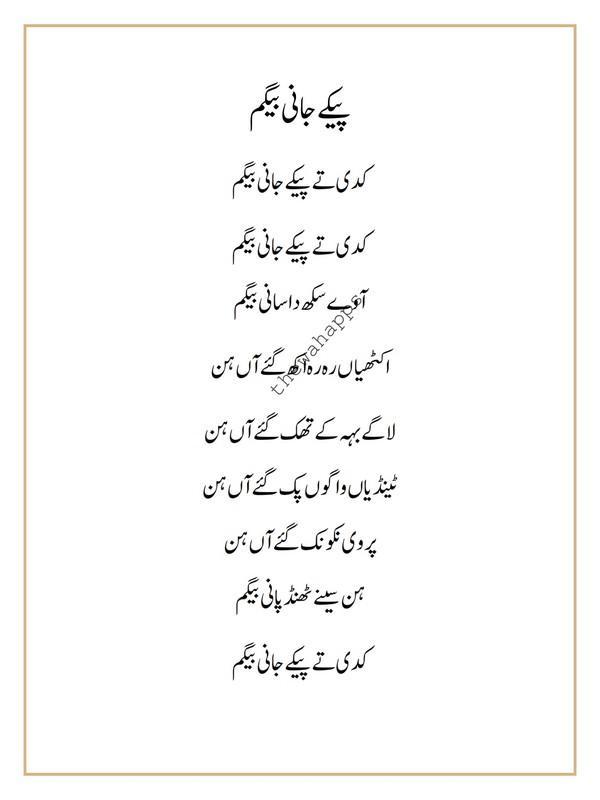 پیکے جانی بیگم
کدی تے پیکے جانی بیگم
کدی تے پیکے جانی بیگم
آوے سکھ دا سانی بیگم
اکٹھیاں رہ رہ اکھ گئے آں ہن
لاگے بہہ کے تھک گئے آں ہن
ٹینڈیاں واگوں پک گئے آں ہن
پروی نکو نک گئے آں ہن
ہن سینے ٹھنڈ پانی بیگم
کدی تے پیکے جانی بیگم